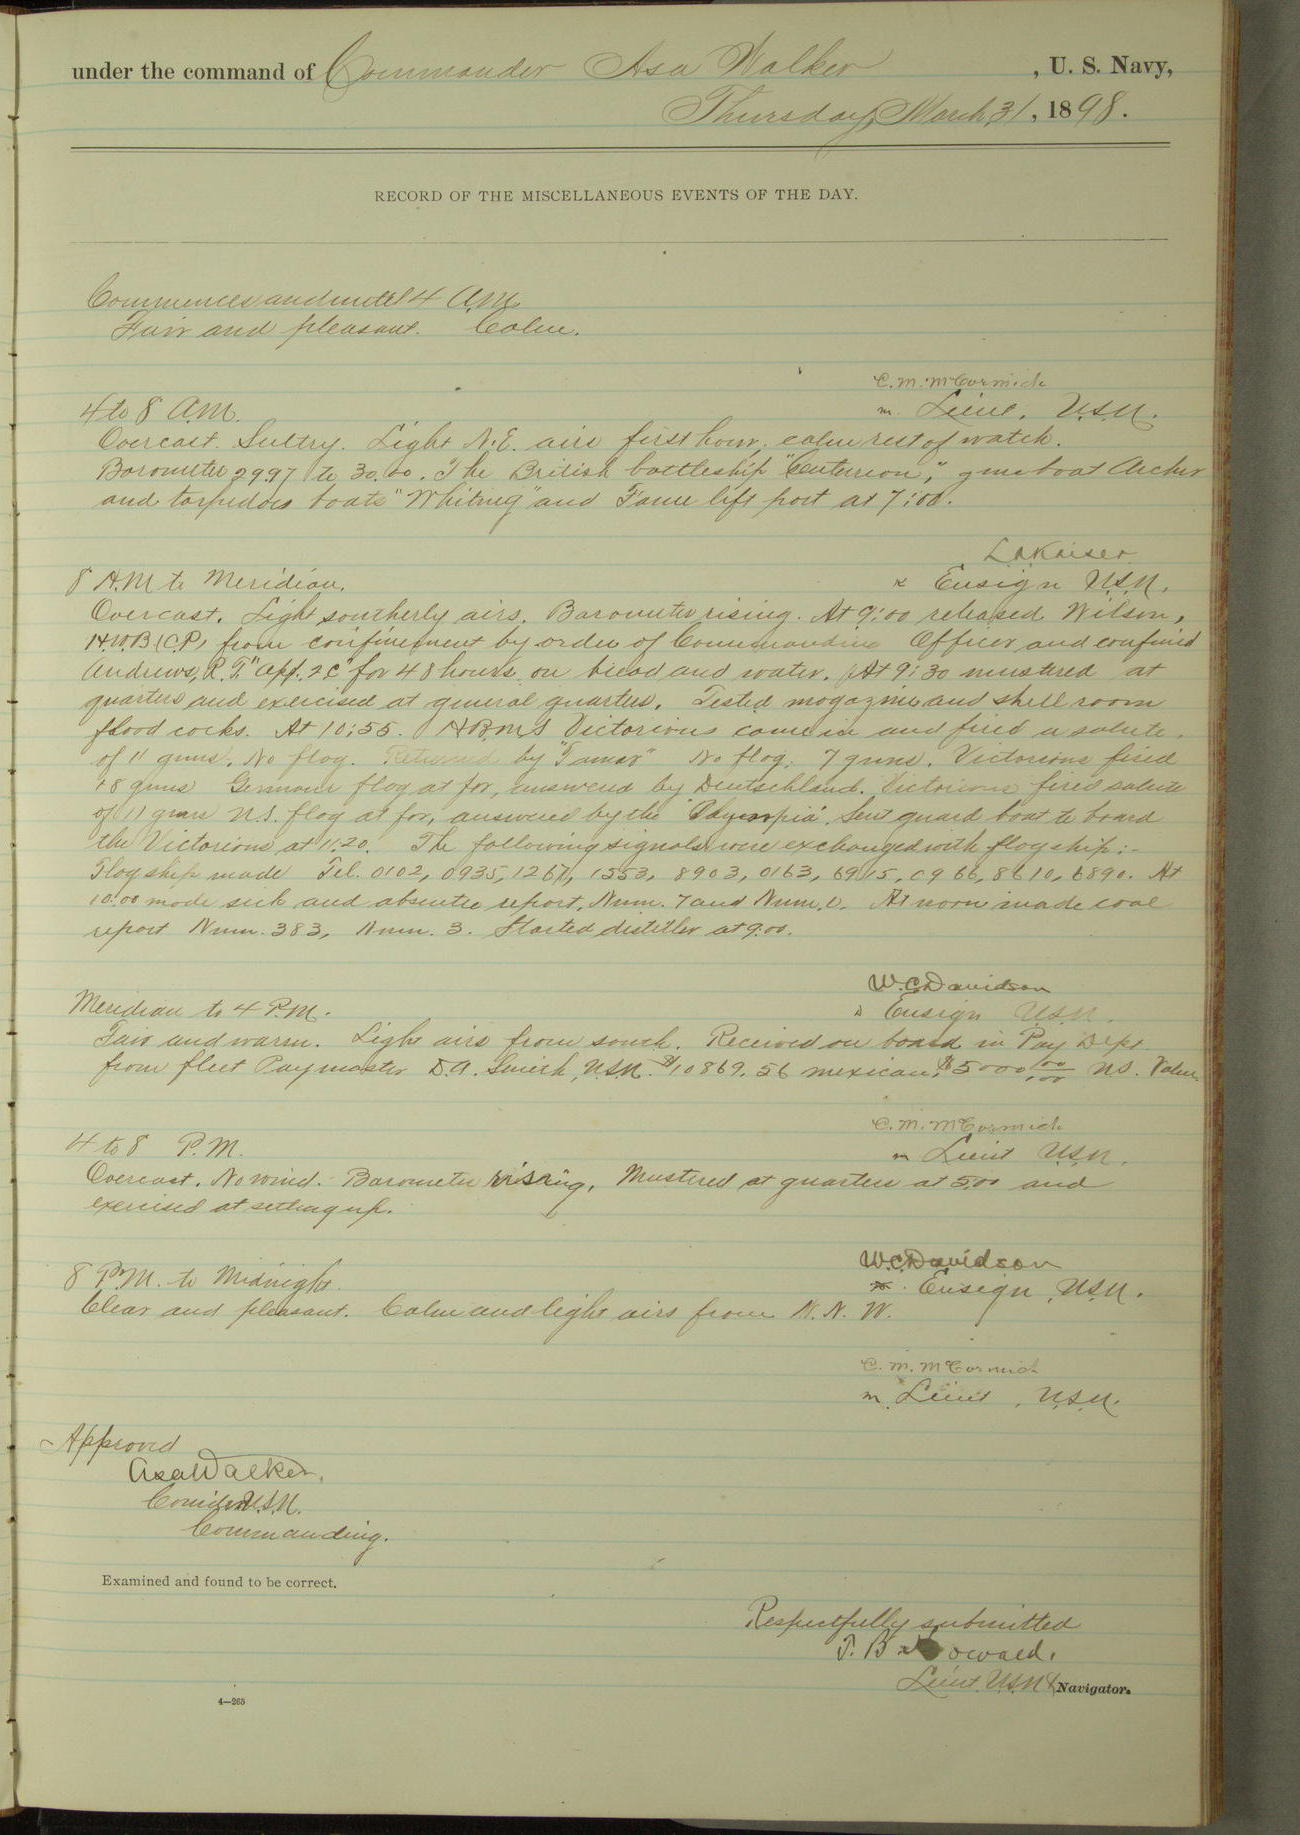 under the command of Commander Asa Walker, U. S. Navy,
Thursday, March 31, 1898.
RECORD OF THE MISCELLANEOUS EVENTS OF THE DAY.
Commences and until 4 A.M.
Fair and pleasant. Calm.
C. M. McCormick
Lieut. U.S.N.
4 to 8 A.M.
Overcast. Sultry. Light N.E. airs first hour, calm rest of watch.
Barometer 29.97 to 30.00. The British battleship "Centurion," gun boat Archer
and torpedoes boats "Whiting" and Fame left port at 7:00.
L A Kaiser
Ensign U.S.N.
8 A.M to Meridian.
Overcast. Light southerly airs. Barometer rising. At 9:00 released Wilson,
H.W.B (C.P.) from confinement by order of Commanding Officer and confined
Andrews, R. T. "App. 2 C" for 48 hours on bread and water. At 9:30 mustered at
quarters and exercised at general quarters. Tested magazine and shell room
flood cocks. At 10:55. H.B.M.S Victorious came in and fired a salute
of 11 guns. No flag. Returned by "Tamar" No flag. 7 guns. Victorious fired
18 guns German flag at for, answered by Deutschland. Victorious fired salute
of 11 guns U.S. flag at for, answered by the "Olympia". Sent guard boat to board
the Victorious at 11:20. The following signals were exchanged with flagship:-
Flagship made Tel. 0102, 0935, 1267, 1553, 8903, 0163, 6915, 0966, 8610, 6890. At
10:00 made sick and absentee report, Num. 7 and Num. 0. At noon made coal
report Num. 383, Num. 3. Started distiller at 9:00.
W. C. Davidson
Ensign U.S.N.
Meridian to 4 P.M.
Fair and warm. Light airs from south. Received on board in Pay Dept.
from fleet Paymaster D.A. Smith, U.S.N. $10869.56 mexican, $5000 00/100 U.S. Value
C. M. McCormick
Lieut U.S.N.
4 to 8 P.M.
Overcast. No wind. Barometer rising. Mustered at quarters at 5:00 and
exercised at setting up.
W. C. Davidson
Ensign, U.S.N.
8 P.M. to Midnight.
Clear and pleasant. Calm and light airs from N. N. W.
C. M. McCormick
Lieut, U.S.N.
Approved
Asa Walker,
Comdr U.S.N.
Commanding.
Examined and found to be correct.
Respectfully submitted
T. B. Howard.
Lieut. U.S.N & Navigator.
4—265